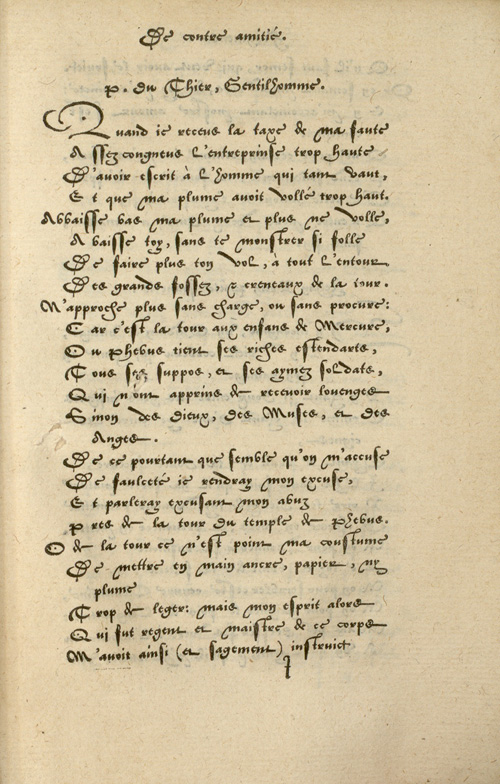 De contre amitié.
P. du Thier, Gentilhomme.
Quand ie receus la taxe de ma faute
Assez congneus l'entreprinse trop haute
D'avoir escrit à l'homme qui tant vaut,
Et que ma plume avoit vollé trop haut.
Abbaisse bas ma plume et plus ne volle,
Abaisse toy, sans te monstrer si folle
De faire plus ton vol, à tout l'entour
Des grands fossez, & creneaux de la tour.
N'approche plus sans charge, ou sans procure:
Car c'est la tour aux enfans de Mercure,
Ou Phebus tient ses riches estendarts,
Tous ses suppos, et ses aymez soldats,
Qui n'ont apprins de recevoir louenges
Sinon des dieux, des Muses, et des
Anges.
De ce pourtant que semble qu'on m'accuse
De faulceté ie rendray mon excuse,
Et parleray excusant mon abuz
Pres de la tour du temple de Phebus.
O de la tour ce n'est point ma coustume
De mettre en main ancre, papier, ny
plume
Trop de leger: mais mon esprit alors
Qui fut regent et maistre de ce corps
M'avoit ainsi (et sagement) instruict